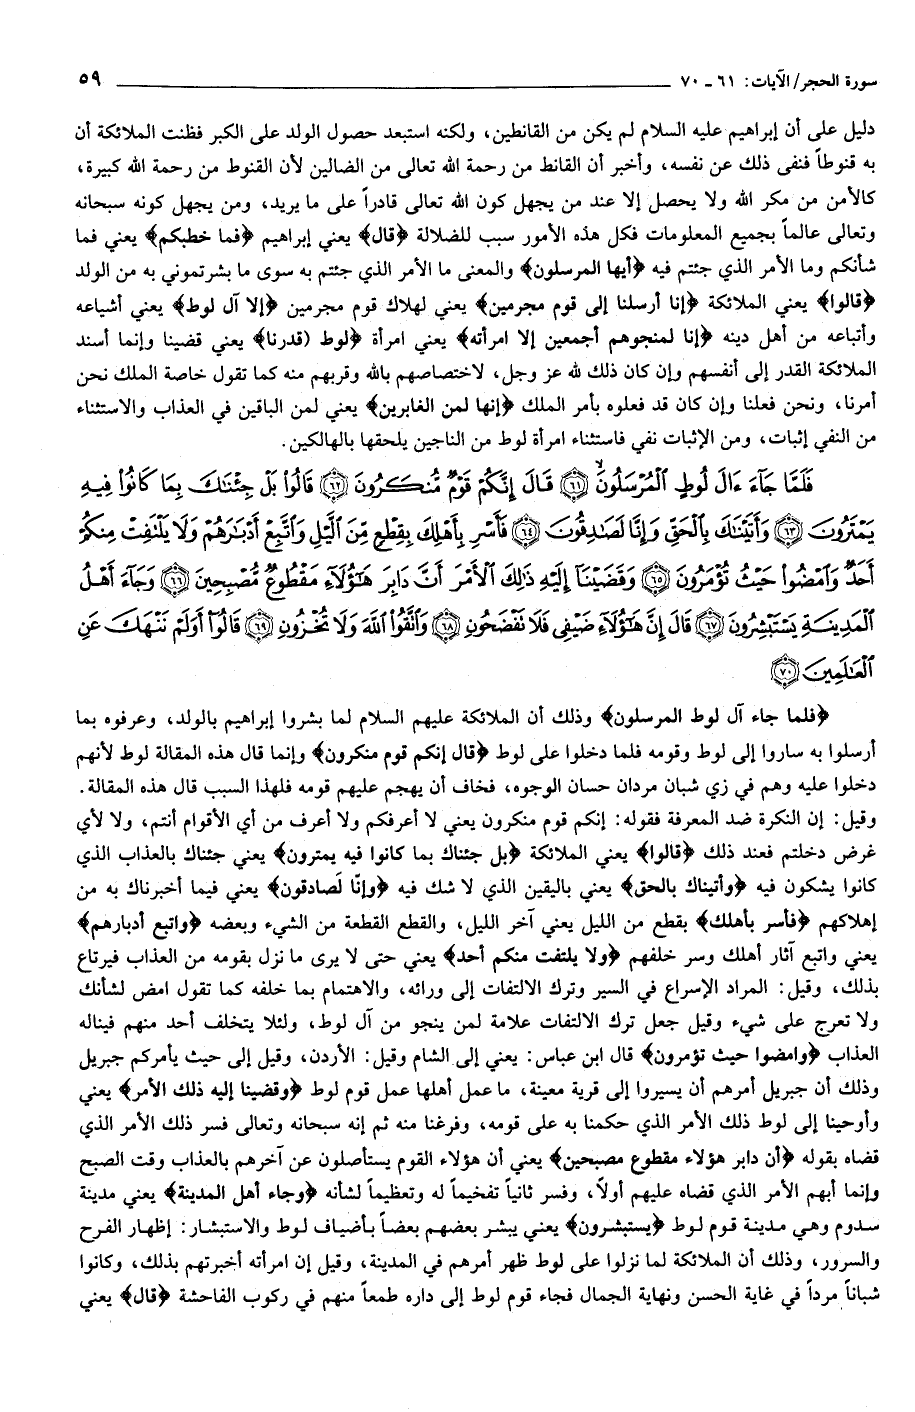 سورة الحجر/ الآيات: ٦١ ـ ٧٠ ٥٩
دليل على أن إبراهيم عليه السلام لم يكن من القانطين، ولكنه استبعد حصول الولد على الكبر فظنت الملائكة أن
به قنوطاً فنفى ذلك عن نفسه، وأخبر أن القانط من رحمة الله تعالى من الضالين لأن القنوط من رحمة الله كبيرة،
كالأمن من مكر الله ولا يحصل إلا عند من يجهل كون الله تعالى قادراً على ما يريد، ومن يجهل كونه سبحانه
وتعالى عالماً بجميع المعلومات فكل هذه الأمور سبب للضلالة ﴿قال﴾ يعني إبراهيم ﴿فما خطبكم﴾ يعني فما
شأنكم وما الأمر الذي جئتم فيه ﴿أيها المرسلون﴾ والمعنى ما الأمر الذي جئتم به سوى ما بشرتموني به من الولد
﴿قالوا﴾ يعني الملائكة ﴿إنا أرسلنا إلى قوم مجرمين﴾ يعني لهلاك قوم مجرمين ﴿إلا آل لوط﴾ يعني أشياعه
وأتباعه من أهل دينه ﴿إنا لمنجوهم أجمعين إلا امرأته﴾ يعني امرأة ﴿لوط (قدرنا﴾ يعني قضينا وإنما أسند
الملائكة القدر إلى أنفسهم وإن كان ذلك لله عز وجل، لاختصاصهم بالله وقربهم منه كما تقول خاصة الملك نحن
أمرنا، ونحن فعلنا وإن كان قد فعلوه بأمر الملك ﴿إنها لمن الغابرين﴾ يعني لمن الباقين في العذاب والاستثناء
من النفي إثبات، ومن الإثبات نفي فاستثناء امرأة لوط من الناجين يلحقها بالهالكين.
فَلَمَّا جَآءَ ءَالَ لُوطٍ ٱلْمُرْسَلُونَ ﴿٦١﴾ قَالَ إِنَّكُمْ قَوْمٌ مُّنكَرُونَ ﴿٦٢﴾ قَالُوا۟ بَلْ جِئْنَٰكَ بِمَا كَانُوا۟ فِيهِ
يَمْتَرُونَ ﴿٦٣﴾ وَأَتَيْنَٰكَ بِٱلْحَقِّ وَإِنَّا لَصَٰدِقُونَ ﴿٦٤﴾ فَأَسْرِ بِأَهْلِكَ بِقِطْعٍ مِّنَ ٱلَّيْلِ وَٱتَّبِعْ أَدْبَٰرَهُمْ وَلَا يَلْتَفِتْ مِنكُمْ
أَحَدٌ وَٱمْضُوا۟ حَيْثُ تُؤْمَرُونَ ﴿٦٥﴾ وَقَضَيْنَآ إِلَيْهِ ذَٰلِكَ ٱلْأَمْرَ أَنَّ دَابِرَ هَٰٓؤُلَآءِ مَقْطُوعٌ مُّصْبِحِينَ ﴿٦٦﴾ وَجَآءَ أَهْلُ
ٱلْمَدِينَةِ يَسْتَبْشِرُونَ ﴿٦٧﴾ قَالَ إِنَّ هَٰٓؤُلَآءِ ضَيْفِى فَلَا تَفْضَحُونِ ﴿٦٨﴾ وَٱتَّقُوا۟ ٱللَّهَ وَلَا تُخْزُونِ ﴿٦٩﴾ قَالُوٓا۟ أَوَلَمْ نَنْهَكَ عَنِ
ٱلْعَٰلَمِينَ ﴿٧٠﴾
﴿فلما جاء آل لوط المرسلون﴾ وذلك أن الملائكة عليهم السلام لما بشروا إبراهيم بالولد، وعرفوه بما
أرسلوا به ساروا إلى لوط وقومه فلما دخلوا على لوط ﴿قال إنكم قوم منكرون﴾ وإنما قال هذه المقالة لوط لأنهم
دخلوا عليه وهم في زي شبان مردان حسان الوجوه، فخاف أن يهجم عليهم قومه فلهذا السبب قال هذه المقالة.
وقيل: إن النكرة ضد المعرفة فقوله: إنكم قوم منكرون يعني لا أعرفكم ولا أعرف من أي الأقوام أنتم، ولا لأي
غرض دخلتم فعند ذلك ﴿قالوا﴾ يعني الملائكة ﴿بل جئناك بما كانوا فيه يمترون﴾ يعني جئناك بالعذاب الذي
كانوا يشكون فيه ﴿وأتيناك بالحق﴾ يعني باليقين الذي لا شك فيه ﴿وإنّا لَصادقون﴾ يعني فيما أخبرناك به من
إهلاكهم ﴿فأسر بأهلك﴾ بقطع من الليل يعني آخر الليل، والقطع القطعة من الشيء وبعضه ﴿واتبع أدبارهم﴾
يعني واتبع آثار أهلك وسر خلفهم ﴿ولا يلتفت منكم أحد﴾ يعني حتى لا يرى ما نزل بقومه من العذاب فيرتاع
بذلك، وقيل: المراد الإسراع في السير وترك الالتفات إلى ورائه، والاهتمام بما خلفه كما تقول امض لشأنك
ولا تعرج على شيء وقيل جعل ترك الالتفات علامة لمن ينجو من آل لوط، ولئلا يتخلف أحد منهم فيناله
العذاب ﴿وامضوا حيث تؤمرون﴾ قال ابن عباس: يعني إلى الشام وقيل: الأردن، وقيل إلى حيث يأمركم جبريل
وذلك أن جبريل أمرهم أن يسيروا إلى قرية معينة، ما عمل أهلها عمل قوم لوط ﴿وقضينا إليه ذلك الأمر﴾ يعني
وأوحينا إلى لوط ذلك الأمر الذي حكمنا به على قومه، وفرغنا منه ثم إنه سبحانه وتعالى فسر ذلك الأمر الذي
قضاه بقوله ﴿أن دابر هؤلاء مقطوع مصبحين﴾ يعني أن هؤلاء القوم يستأصلون عن آخرهم بالعذاب وقت الصبح
وإنما أبهم الأمر الذي قضاه عليهم أولاً، وفسر ثانياً تفخيماً له وتعظيماً لشأنه ﴿وجاء أهل المدينة﴾ يعني مدينة
سدوم وهي مدينة قوم لوط ﴿يستبشرون﴾ يعني يبشر بعضهم بعضاً بأضياف لوط والاستبشار: إظهار الفرح
والسرور، وذلك أن الملائكة لما نزلوا على لوط ظهر أمرهم في المدينة، وقيل إن امرأته أخبرتهم بذلك، وكانوا
شباناً مرداً في غاية الحسن ونهاية الجمال فجاء قوم لوط إلى داره طمعاً منهم في ركوب الفاحشة ﴿قال﴾ يعني